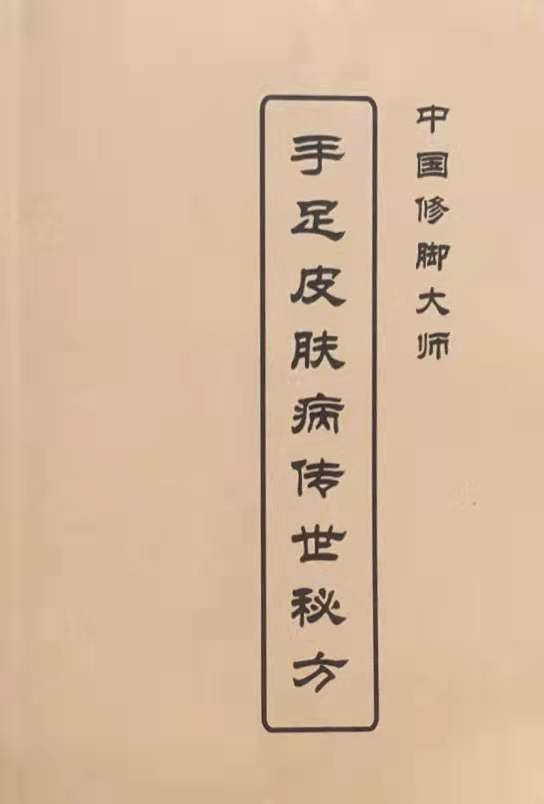 中国修脚大师
手足皮肤病传世秘方